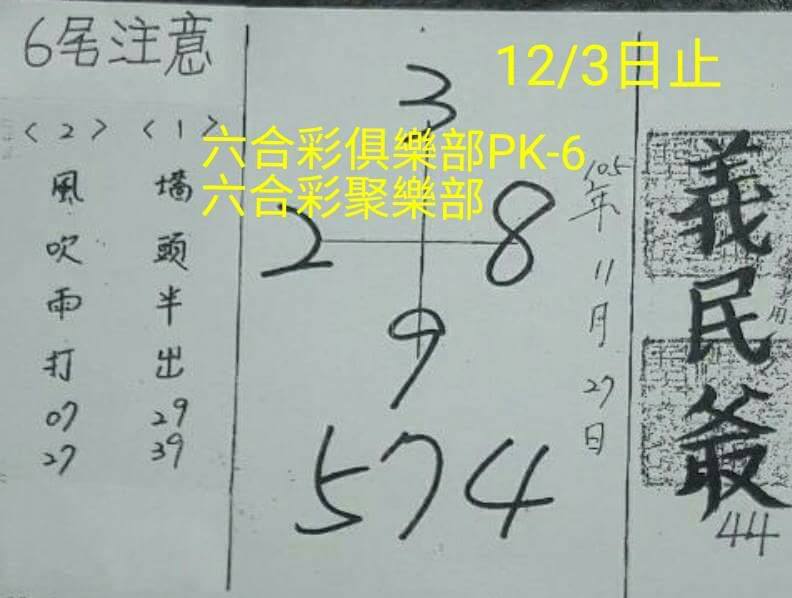 6名注意
〈2〉
風吹雨打
07
27
〈1〉
墻頭半出
29
39
12/3日止
六合彩俱樂部PK-6
六合彩聚樂部
3
2 8
9
574
105年11月27日
義民爺
44